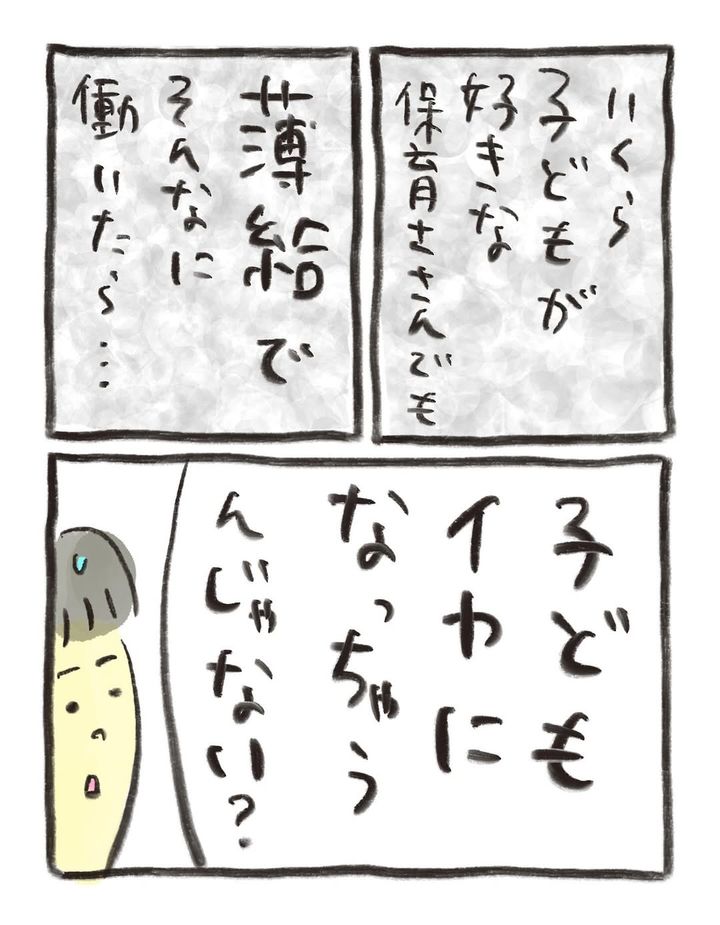 いくら
子どもが
好きな
保育ささんでも
薄給で
そんなに
働いたら…
子ども
イヤに
なっちゃう
んじゃない?